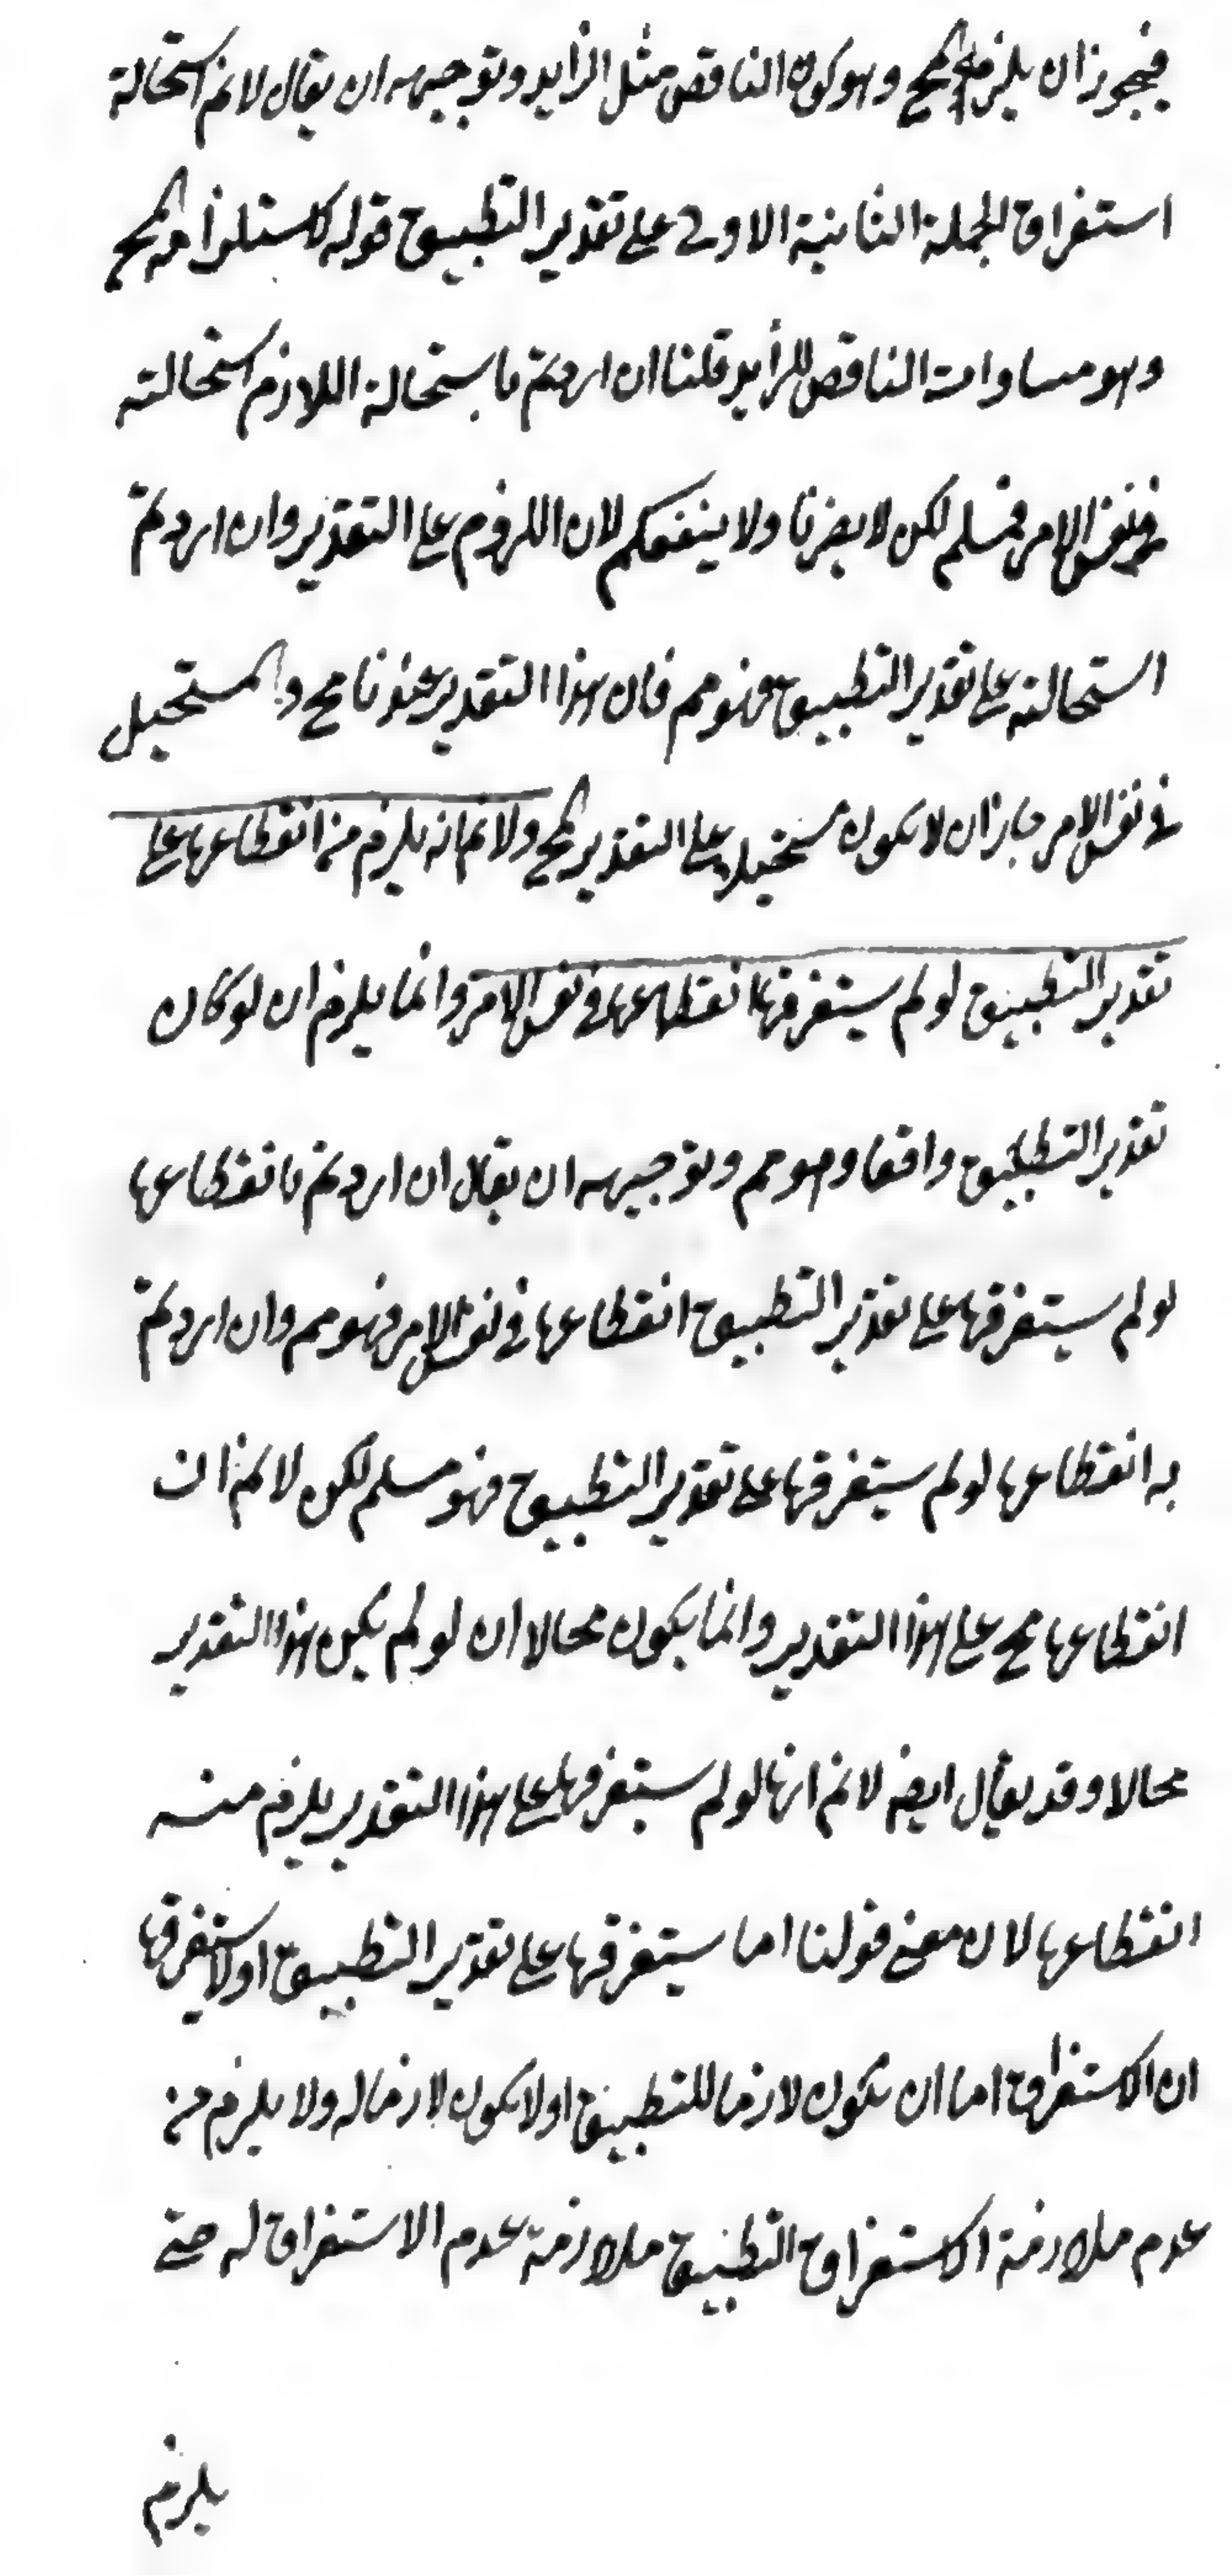 فيجوز ان يلزمه المح وهو كون الناقص مثل الزايد وتوجيهه ان يقال لانم استحالة
استغراق الجملة الثانية الاولى على تقدير التطبيق قوله لاستلزامه المح
وهو مساوات الناقص للزايد قلنا ان اردتم باستحالة اللازم استحالته
في نفس الامر فمسلم لكن لا يضرنا ولا ينفعكم لان اللزوم على التقدير وان اردتم
استحالته على تقدير التطبيق فهو مم فان هذا التقدير عندنا مح والمستحيل
في نفس الامر جاز ان لا يكون مستحيلا على التقدير المح ولانم انه يلزم من انقطاعها على
تقدير التطبيق لو لم يستغرقها انقطاعها في نفس الامر وانما يلزم ان لو كان
تقدير التطبيق واقعا وهو مم وتوجيهه ان يقال ان اردتم بانقطاعها
لو لم يستغرقها على تقدير التطبيق انقطاعها في نفس الامر فهو مم وان اردتم
به انقطاعها لو لم يستغرقها على تقدير التطبيق فهو مسلم لكن لانم ان
انقطاعها مح على هذا التقدير وانما يكون محالا ان لو لم يكن هذا التقدير
محالا وقد يقال ايضا لانم انها لو لم يستغرقها على هذا التقدير يلزم منه
انقطاعها لان معنى قولنا اما يستغرقها على تقدير التطبيق او لا يستغرقها
ان الاستغراق اما ان يكون لازما للتطبيق او لا يكون لازما له ولا يلزم من
عدم ملازمة الاستغراق التطبيق ملازمة عدم الاستغراق له حتى
يلزم